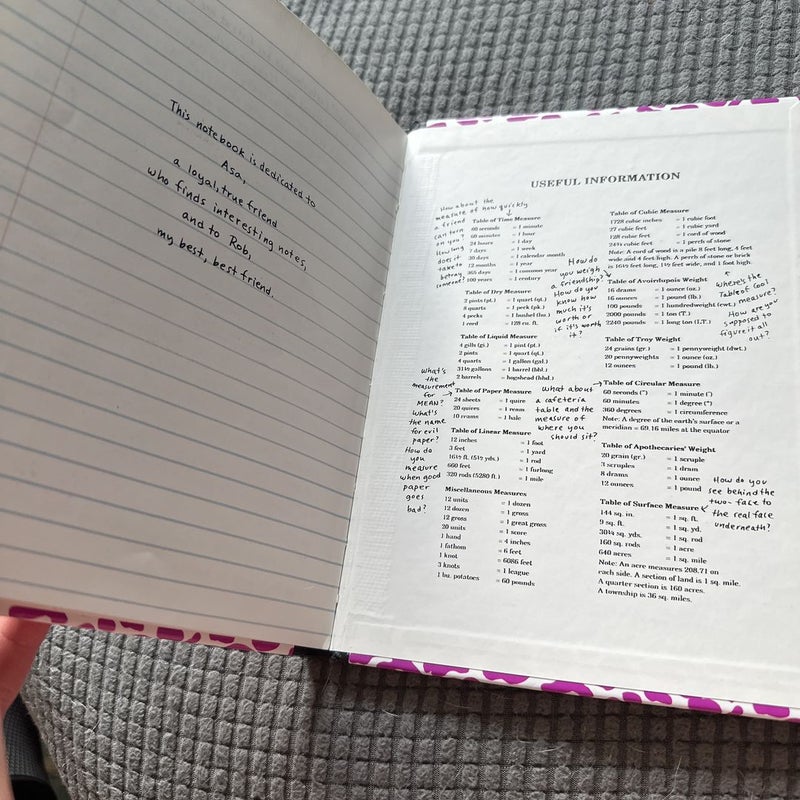 This notebook is dedicated to
Asa,
a loyal, true friend
who finds interesting notes,
and to Rob,
my best, best friend.
USEFUL INFORMATION
How about the
measure of how quickly
a friend
can turn
on you?
How long
does it
take to
betray
someone?
Table of Time Measure
60 seconds = 1 minute
60 minutes = 1 hour
24 hours = 1 day
7 days = 1 week
30 days = 1 calendar month
12 months = 1 year
365 days = 1 common year
100 years = 1 century
Table of Dry Measure
2 pints (pt.) = 1 quart (qt.)
8 quarts = 1 peck (pk.)
4 pecks = 1 bushel (bu.)
1 cord = 128 cu. ft.
How do
you weigh
a friendship?
How do you
know how
much it's
worth or
if it's worth
it?
Table of Liquid Measure
4 gills (gi.) = 1 pint (pt.)
2 pints = 1 quart (qt.)
4 quarts = 1 gallon (gal.)
31½ gallons = 1 barrel (bbl.)
2 barrels = hogshead (hhd.)
What's
the
measurement
for
MEAN?
What's
the name
for evil
paper?
How do
you
measure
when good
paper
goes
bad?
Table of Paper Measure
24 sheets = 1 quire
20 quires = 1 ream
10 reams = 1 bale
What about
a cafeteria
table and the
measure of
where you
should sit?
Table of Linear Measure
12 inches = 1 foot
3 feet = 1 yard
16½ ft. (5½ yds.) = 1 rod
660 feet = 1 furlong
320 rods (5280 ft.) = 1 mile
Miscellaneous Measures
12 units = 1 dozen
12 dozen = 1 gross
12 gross = 1 great gross
20 units = 1 score
1 hand = 4 inches
1 fathom = 6 feet
1 knot = 6086 feet
3 knots = 1 league
1 bu. potatoes = 60 pounds
Table of Cubic Measure
1728 cubic inches = 1 cubic foot
27 cubic feet = 1 cubic yard
128 cubic feet = 1 cord of wood
24¾ cubic feet = 1 perch of stone
Note: A cord of wood is a pile 8 feet long, 4 feet
wide and 4 feet high. A perch of stone or brick
is 16½ feet long, 1½ feet wide, and 1 foot high.
Table of Avoirdupois Weight
16 drams = 1 ounce (oz.)
16 ounces = 1 pound (lb.)
100 pounds = 1 hundredweight (cwt.)
2000 pounds = 1 ton (T.)
2240 pounds = 1 long ton (L.T.)
Where's the
Table of Cool
measure?
How are you
supposed to
figure it all
out?
Table of Troy Weight
24 grains (gr.) = 1 pennyweight (dwt.)
20 pennyweights = 1 ounce (oz.)
12 ounces = 1 pound (lb.)
Table of Circular Measure
60 seconds (") = 1 minute (')
60 minutes = 1 degree (°)
360 degrees = 1 circumference
Note: A degree of the earth's surface or a
meridian = 69.16 miles at the equator
Table of Apothecaries' Weight
20 grain (gr.) = 1 scruple
3 scruples = 1 dram
8 drams = 1 ounce
12 ounces = 1 pound
How do you
see behind the
two-face to
the real face
underneath?
Table of Surface Measure
144 sq. in. = 1 sq. ft.
9 sq. ft. = 1 sq. yd.
30¼ sq. yds. = 1 sq. rod
160 sq. rods = 1 acre
640 acres = 1 sq. mile
Note: An acre measures 208.71 on
each side. A section of land is 1 sq. mile.
A quarter section is 160 acres.
A township is 36 sq. miles.